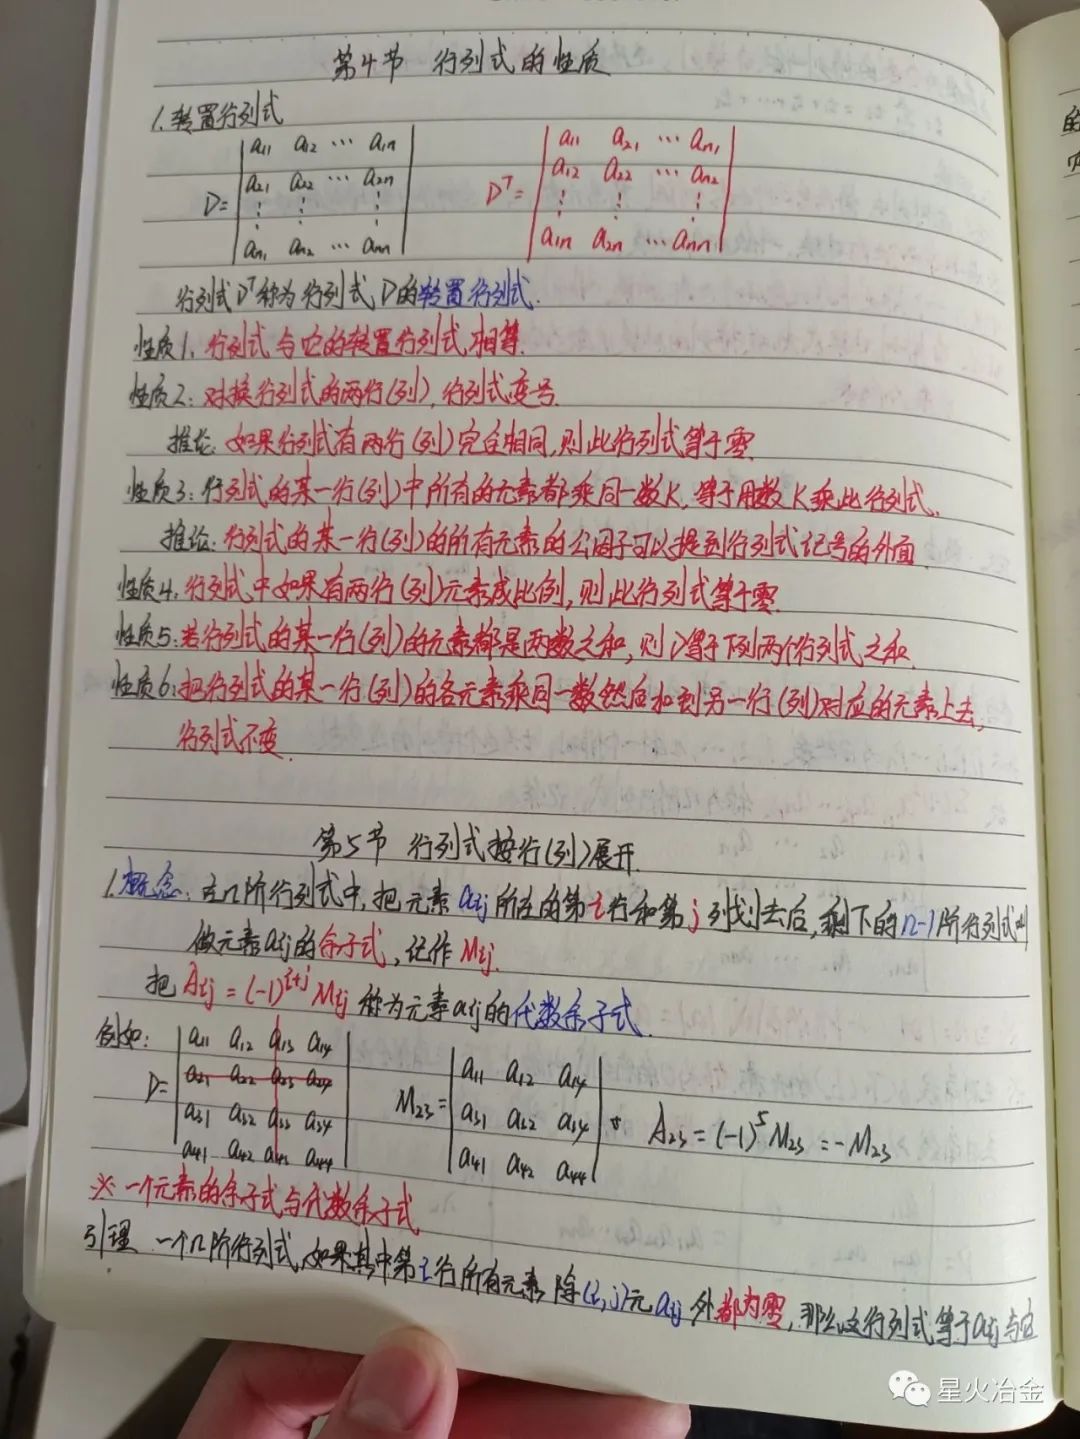 第4节 行列式的性质
1.转置行列式
D= | a11 a12 ⋯ a1n | Dᵀ= | a11 a21 ⋯ an1 |
| a21 a22 ⋯ a2n | | a12 a22 ⋯ an2 |
| ⋮ ⋮ ⋮ | | ⋮ ⋮ ⋮ |
| an1 an2 ⋯ ann | | a1n a2n ⋯ ann |
行列式Dᵀ称为行列式D的转置行列式.
性质1.行列式与它的转置行列式相等.
性质2:对换行列式的两行(列),行列式变号.
推论:如果行列式有两行(列)完全相同,则此行列式等于零.
性质3:行列式的某一行(列)中所有的元素都乘同一数K,等于用数K乘此行列式.
推论:行列式的某一行(列)的所有元素的公因子可以提到行列式记号的外面.
性质4.行列式中如果有两行(列)元素成比例,则此行列式等于零.
性质5:若行列式的某一行(列)的元素都是两数之和,则D等于下列两个行列式之和.
性质6:把行列式的某一行(列)的各元素乘同一数然后加到另一行(列)对应的元素上去,
行列式不变.
第5节 行列式按行(列)展开.
1.概念:在n阶行列式中,把元素aij所在的第i行和第j列划去后,剩下的n-1阶行列式叫
做元素aij的余子式,记作Mij.
把Aij=(-1)^(i+j) Mij 称为元素aij的代数余子式.
例如: D= | a11 a12 a13 a14 | M23= | a11 a12 a14 | , A23=(-1)^5 M23=-M23
| a21 a22 a23 a24 | | a31 a32 a34 |
| a31 a32 a33 a34 | | a41 a42 a44 |
| a41 a42 a43 a44 |
※一个元素的余子式与代数余子式
引理 一个n阶行列式,如果其中第i行所有元素除(i,j)元aij外都为零,那么这行列式等于aij与它
星火冶金